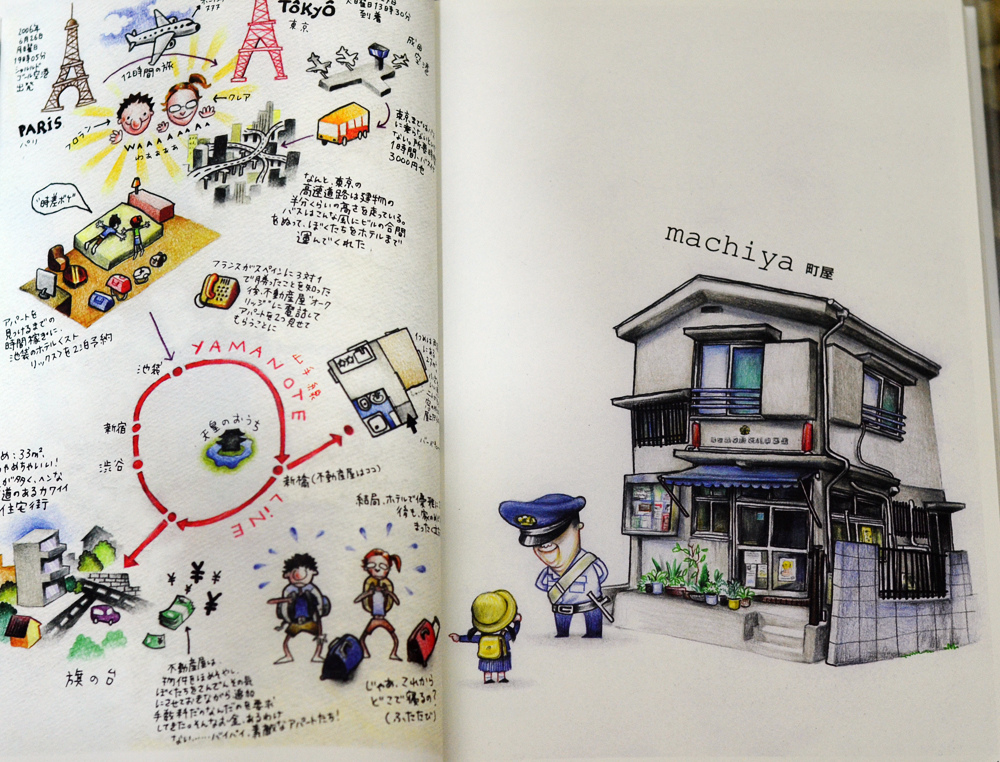 2006年
6月26日
月曜日
19時05分
シャルルド
ゴール空港
出発
PARiS
パリ
12時間の旅
TôKyÔ
東京
火曜日13時30分
到着
成田
空港
フロラン
クレア
WAAAAAAA
わぁぁぁぁ
1時間、バスで
3000円也
なんと、東京の
高速道路は建物の
半分くらいの高さを走っている。
バスはこんな風にビルの合間
をぬって、ぼくたちをホテルまで
運んでくれた。
"時差ボケ"
フランスがスペインに3対1
で勝ったことを知った
後、不動産屋"オーク
リッジ"に電話して
アパートを2つ見せて
もらうことに
アパートを
見つけるまでの
時間稼ぎに、
池袋のホテル〈スト
リックス〉を2泊予約
YAMANOTE
LiNE
池袋
新宿
渋谷
天皇のおうち
新橋(不動産屋はココ)
め:33m²。
ゃめちゃいい!
が多く、ヘンな
道のあるカワイイ
住宅街
結局、ホテルで優雅に
旗の台
¥
¥
¥
不動産屋は、
物件をほめそやし、
ぼくたちをさんざんその気
にさせておきながら、追加
手数料だのなんだのを要求
してきた。そんなお金、あるわけ
ない……バイバイ、素敵なアパートたち!
じゃあ、これから
どこで寝るの?
(ふたたび)
machiya 町屋